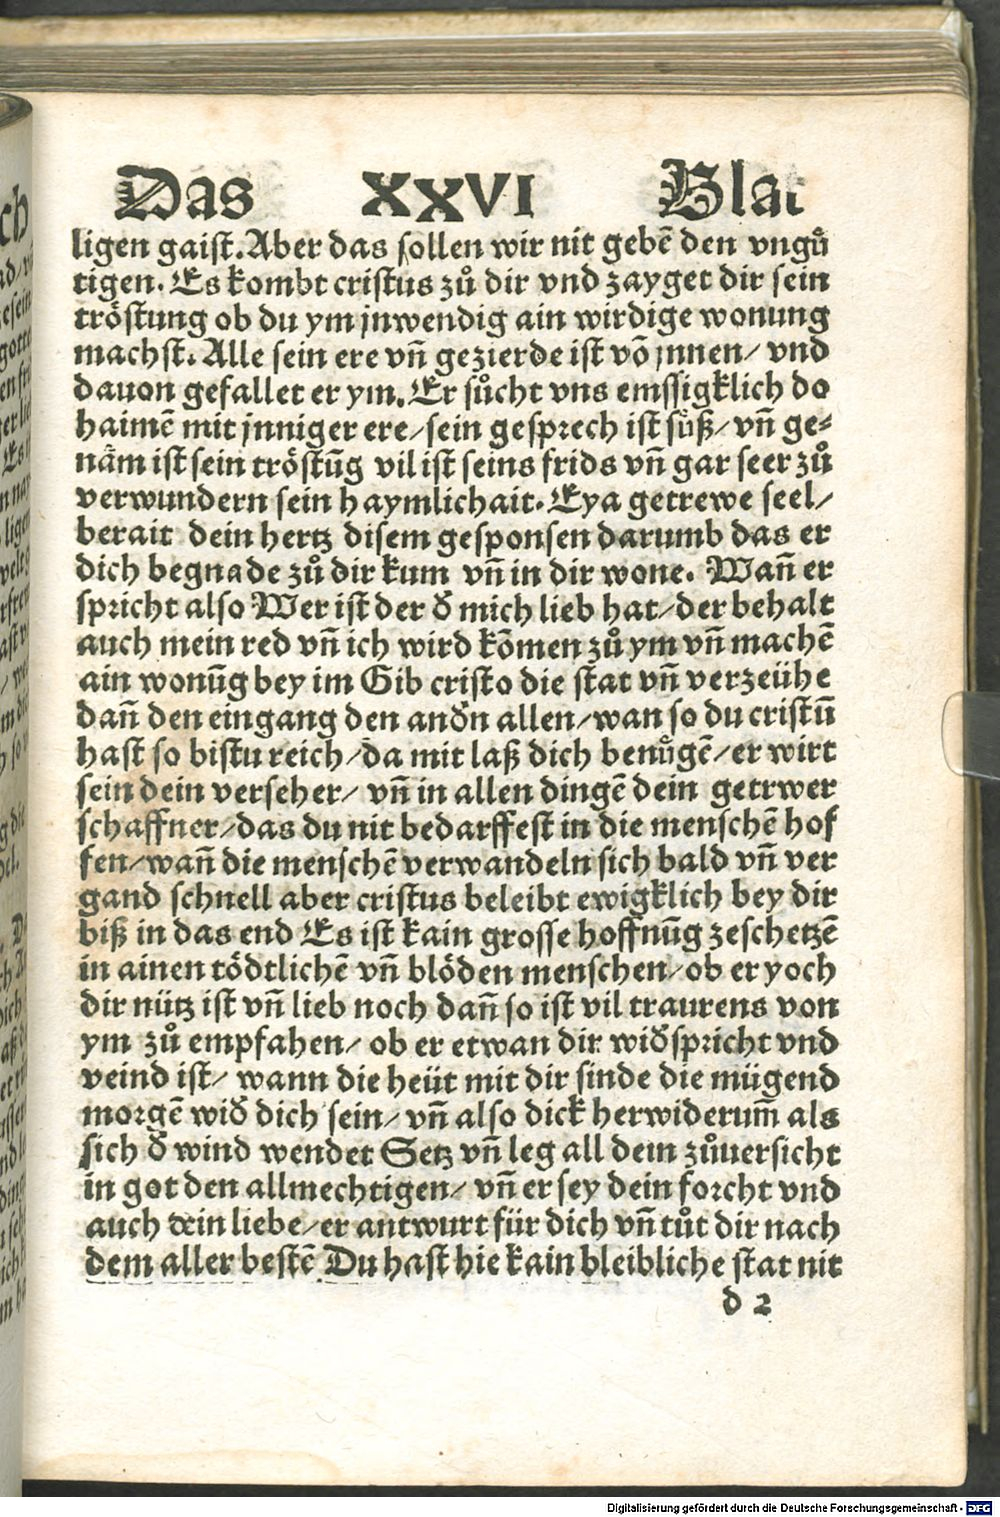 Das XXVI Blat
ligen gaist. Aber das sollen wir nit gebẽ den vngů
tigen. Es kombt cristus zů dir vnd zayget dir sein
tröstung ob du ym jnwendig ain wirdige wonung
machst. Alle sein ere vñ gezierde ist võ jnnen/ vnd
dauon gefallet er ym. Er sůcht vns emssigklich do
haimẽ mit jnniger ere/ sein gesprech ist süß/ vñ ge⸗
näm ist sein tröstũg vil ist seins frids vñ gar seer zů
verwundern sein haymlichait. Eya getrewe seel/
berait dein hertz disem gesponsen darumb das er
dich begnade zů dir kum vñ in dir wone. Wañ er
spricht also Wer ist der δ mich lieb hat/ der behalt
auch mein red vñ ich wird kõmen zů ym vñ machẽ
ain wonũg bey im Gib cristo die stat vñ verzeühe
dañ den eingang den anδn allen/ wan so du cristũ
hast so bistu reich/ da mit laß dich benůgẽ/ er wirt
sein dein verseher/ vñ in allen dingẽ dein getrwer
schaffner/ das du nit bedarffest in die menschẽ hof
fen/ wañ die menschẽ verwandeln sich bald vñ ver
gand schnell aber cristus beleibt ewigklich bey dir
biß in das end Es ist kain grosse hoffnũg zeschetzẽ
in ainen tödtlichẽ vñ blöden menschen/ ob er yoch
dir nütz ist vñ lieb noch dañ so ist vil traurens von
ym zů empfahen/ ob er etwan dir wiδspricht vnd
veind ist/ wann die heüt mit dir sinde die mügend
morgẽ wiδ dich sein/ vñ also dick herwiderum̃ als
sich δ wind wendet Setz vñ leg all dem zůuersicht
in got den allmechtigen/ vñ er sey dein forcht vnd
auch dein liebe/ er antwurt für dich vñ tůt dir nach
dem aller bestẽ Du hast hie kain bleibliche stat nit
d 2
Digitalisierung gefördert durch die Deutsche Forschungsgemeinschaft - DFG